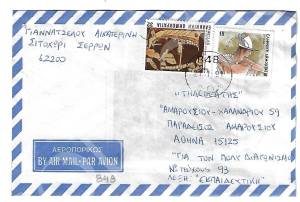 ΓΙΑΝΝΑΤΣΕΛΟΥ ΑΙΚΑΤΕΡΙΝΗ
ΣΙΤΟΧΩΡΙ ΣΕΡΡΩΝ
62200
848
"ΤΗΛΕΘΕΑΤΗΣ"
ΑΜΑΡΟΥΣΙΟΥ-ΧΑΛΑΝΔΡΙΟΥ 59
ΠΑΡΑΔΕΙΣΟΣ ΑΜΑΡΟΥΣΙΟΥ
ΑΘΗΝΑ 15125
"ΓΙΑ ΤΟΝ ΠΟΛΥ ΔΙΑΓΩΝΙΣΜΟ
Νο ΤΕΥΧΟΥΣ 93
ΛΕΞΗ: "ΕΚΠΑΙΔΕΥΤΙΚΗ"
ΑΕΡΟΠΟΡΙΚΩΣ
BY AIR MAIL-PAR AVION
848